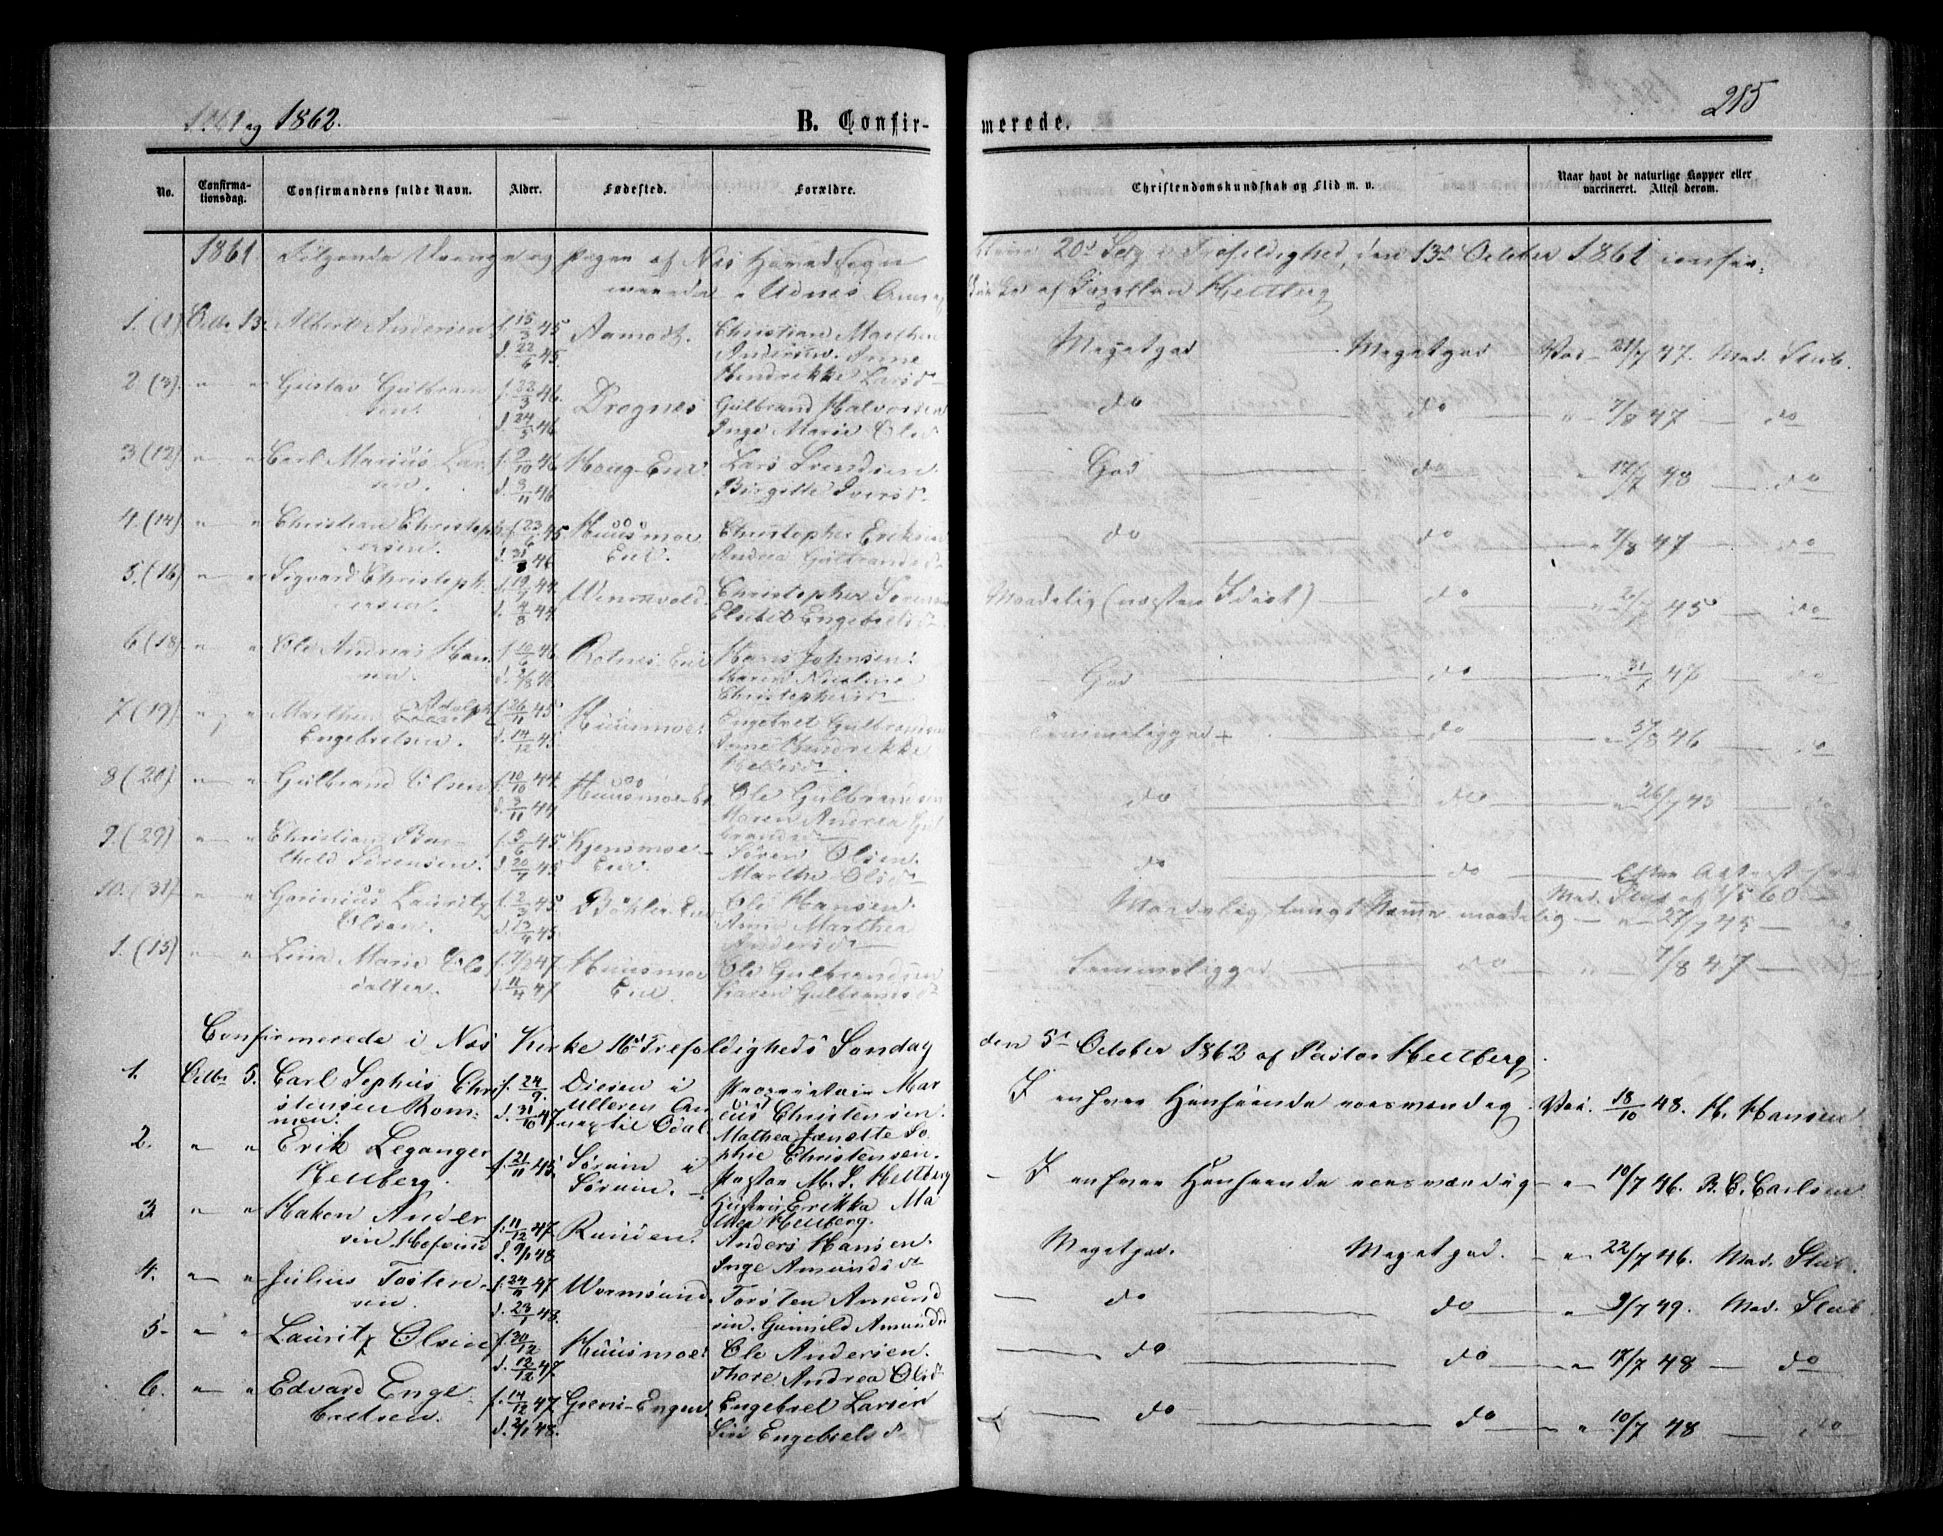 1861 og 1862.
B. Confir-
merede.
215
No.
Confirma-
tionsdag.
Confirmandens fulde Navn.
Alder.
Fødested.
Forældre.
Christendomskundskab og Flid m. v.
Naar havt de naturlige Kopper eller
vaccineret. Attest derom.
1861. Følgende Drenge og Pigen af Næs Hovedsogn 20de Søg. e. Trefoldighed, den 13de October 1861 confir-
merede i Udnes Annex af Capellan Heltberg
1. (1) Octbr 13. Albert Andersen f. 15/3 45 d. 22/6 45. Aamodt. Christian Marthin
Andersen. Anne
Hendrikke Larsd.
Megetgod Megetgod Vac. 21/7 47. Mad. Stub.
2 (3) " " Gustav Gulbrand-
sen f. 22/3 46. d. 24/5 46 Dragnes Gulbrand Halvorsen
Inge Marie Olsd.
do do " 7/8 47 do
3 (12) " " Carl Marius Lar-
sen. f. 2/10 46 d. 8/11 46 Haug-Eie Lars Svendsen.
Birgitte Iversd.
God do " 17/7 48 do
4. (14) " " Christian Christoph-
ersen. f. 23/6 45 d. 31/8 46 Huusmoe
Eie. Christopher Eriksen
Andrea Gulbrandsd.
do do " 7/8 47 do
5. (16) " " Sigvard Christoph-
ersen. f. 19/7 44 d. 4/8 44 Christopher Sørensen
Elsebet Engebretsd.
Maadelig (næsten Idiot) do 45 do
6 (18) " " Ole Andreas Han-
sen. f. 10/6 46 Rotnes-Eie Hans Johnsen.
Maren Nicoline
Christophersd.
God do 47 do
7 (19) " " Marthin Adolph
Engebretsen. f. 26/11 45 d. 14/12 45 Huusmoe Engebret Gulbrandsen
Anne Hendrikke
Temmeliggod + do 5/8 46 do
8 (20) " " Gulbrand Olsen f. 10/10 44 d. 3/11 44 Huusmoe-E. Ole Gulbrandsen
Maren Andrea Gul-
brandsd.
do do " 26/7 45 do
9. (29) " " Christian Bar-
thold Sørensen. f. 3/6 45 d. 20/7 45 Kjensmoe-
Eie. Søren Olsen.
Marthe Olsd.
do do Efter Attest fra
Mad. Stub af 1/5 60
10. (31) " " Lauritz
Olsen. f. 2/3 45. Bøhler-Eie Ole Hansen.
Anne Marthea
Andersd.
Maadelig, tungt Nemme maadelig " 27/7 45 do
1. (15) " " Lina Marie Ols-
datter. f. 7/2 47 d. 11/4 47 Huusmoe
Eie. Ole Gulbrandsen
Karen Gulbrandsd.
Temmeliggod do " 7/8 47 do
Confirmerede i Næs Kirke 16de Trefoldigheds Søndag den 5te October 1862 af Pastor Heltberg.
1. Octbr 5. Carl Sophus Chri-
stensen Rom-
men. f. 24/9. d. 31/10 47 Diesen i
Ulleren An-
nex til Odal Proprietair Mar-
cus Christensen.
Mathea Janette So-
phie Christensen.
I enhver Henseende roesværdig. Vac. 18/10 48. H. Hansen
2. " " Erik Leganger
Heltberg. f. 21/11 45 Sørum i
Sørum. Pastor M. S. Heltberg
Hustru Erikka Ma-
thea Heltberg.
I enhver Henseende roesværdig " 10/7 46. B. C. Carlsen
3 " " Haken Ander-
sen f. 11/12 47 d. 9/1 48 Runden. Anders Hansen.
Inge Amundsd.
Megetgod. Megetgod. " 22/7 46. Mad. Stub.
4. " " Julius Tosten-
sen. f. 24/9 47 d. 23/1 48. Wormsund. Torsten Amund-
sen. Gunnild Amundsd.
do do " 9/7 49. Mad. Stub
5. " " Lauritz Olsen f. 30/12 d. 12/12 47. Huusmoe. Ole Andersen.
Thore Andrea Olsd.
do do " 17/7 48 do
6. " " Edvard Enge-
bretsen. f. 14/12 47. d. 2/1 48. Engebret Larsen
Siri Engebretsd.
do do " 10/7 48 do